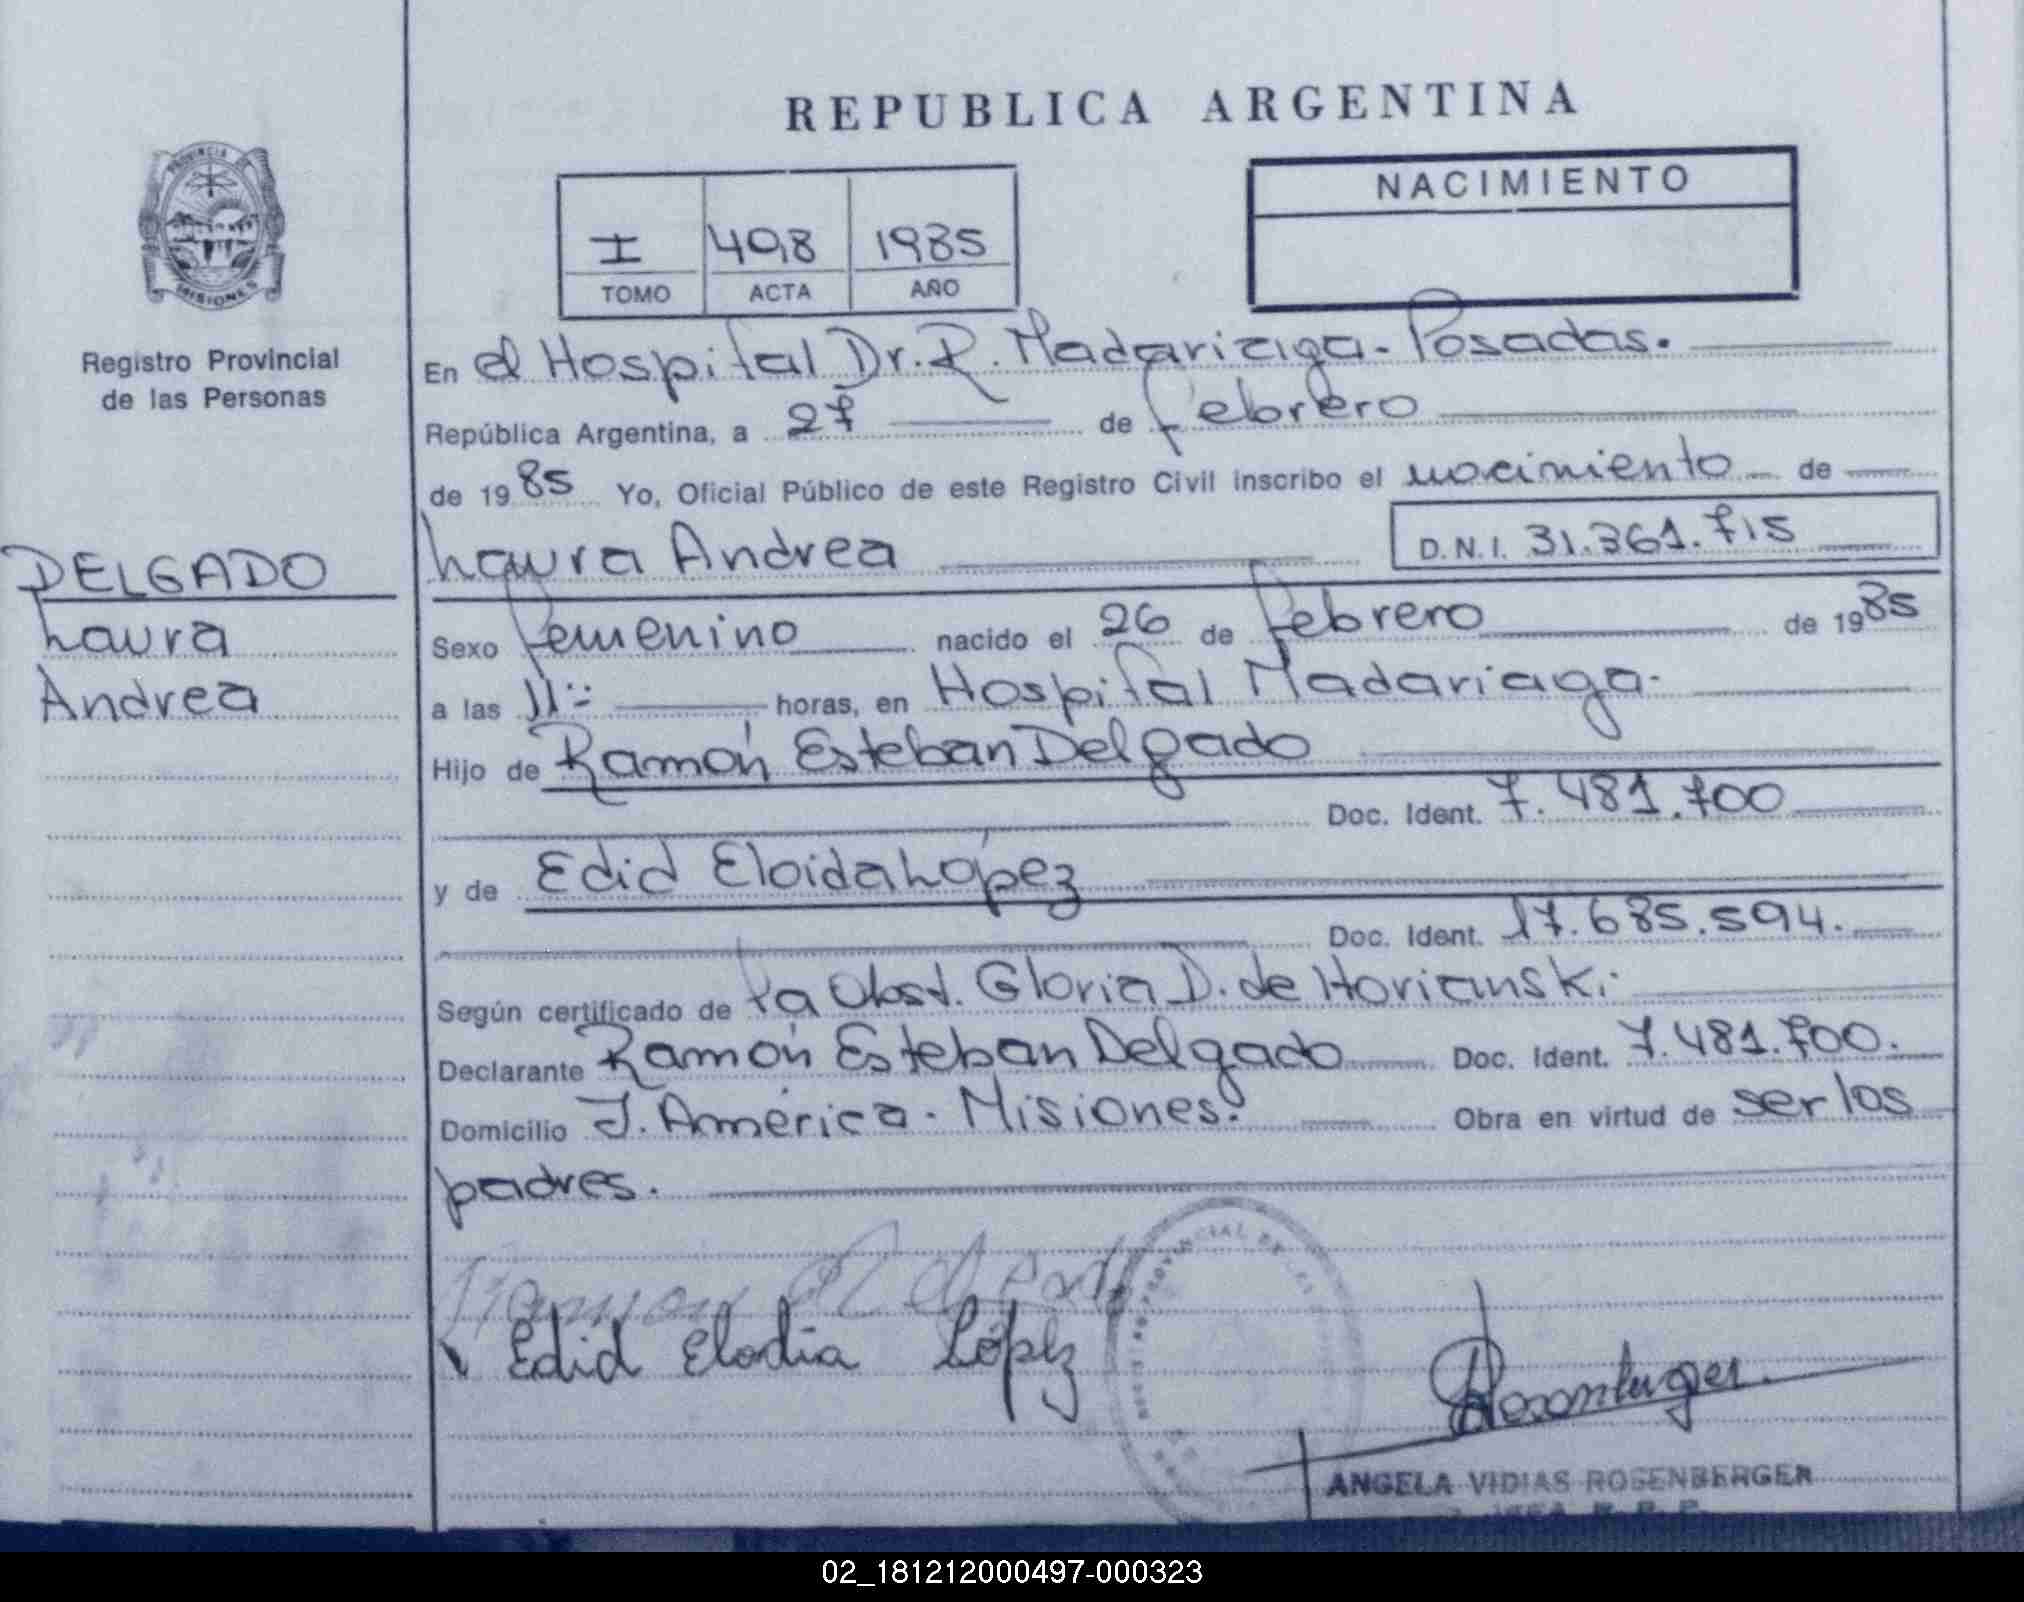 REPUBLICA ARGENTINA
PROVINCIA DE
MISIONES
Registro Provincial
de las Personas
I 408 1985
TOMO ACTA AÑO
NACIMIENTO
En el Hospital Dr. R. Madariaga - Posadas.
República Argentina, a 27 de febrero
de 1985 Yo, Oficial Público de este Registro Civil inscribo el nacimiento de
DELGADO
Laura
Andrea
Laura Andrea D.N.I. 31.361.715
Sexo femenino nacido el 26 de febrero de 1985
a las 11 horas, en Hospital Madariaga.
Hijo de Ramón Esteban Delgado
Doc. Ident. 7.481.700
y de Edid Eloida López
Doc. Ident. 17.685.594.
Según certificado de la Obst. Gloria D. de Horianski.
Declarante Ramón Esteban Delgado Doc. Ident. 7.481.700.
Domicilio J. América - Misiones. Obra en virtud de ser los
padres.
Edid Elodia López
Rosenberger
ANGELA VIDIAS ROSENBERGER
02_181212000497-000323